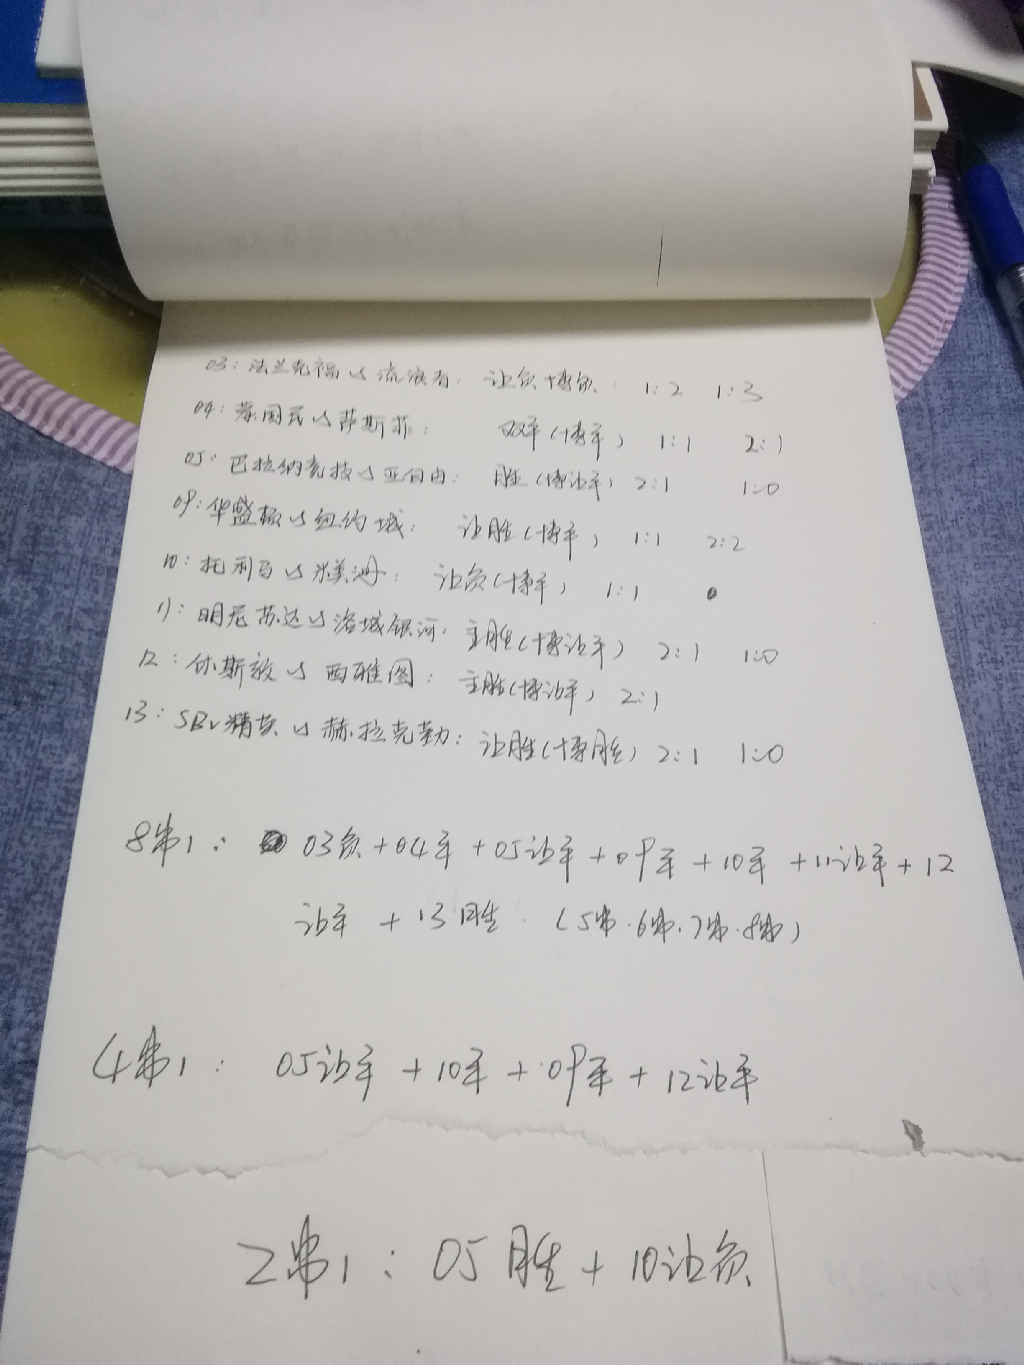 03：法兰克福vs流浪者：让负博负： 1:2 1:3
04：莱国民vs萨斯菲： 双平(博平) 1:1 2:1
05：巴拉纳竞技vs亚自由：胜(博让平) 2:1 1:0
09：华盛顿vs纽约城：让胜(博平) 1:1 2:2
10：托利马vs米美洲：让负(博平) 1:1 0
11：明尼苏达vs洛城银河：主胜(博让平) 2:1 1:0
12：休斯敦vs西雅图：主胜(博让平) 2:1
13：SBV精英vs赫拉克勒：让胜(博胜) 2:1 1:0
8串1： 03负+04平+05让平+09平+10平+11让平+12
让平+13胜 (5串.6串.7串.8串)
4串1： 05让平+10平+09平+12让平
2串1：05胜+10让负